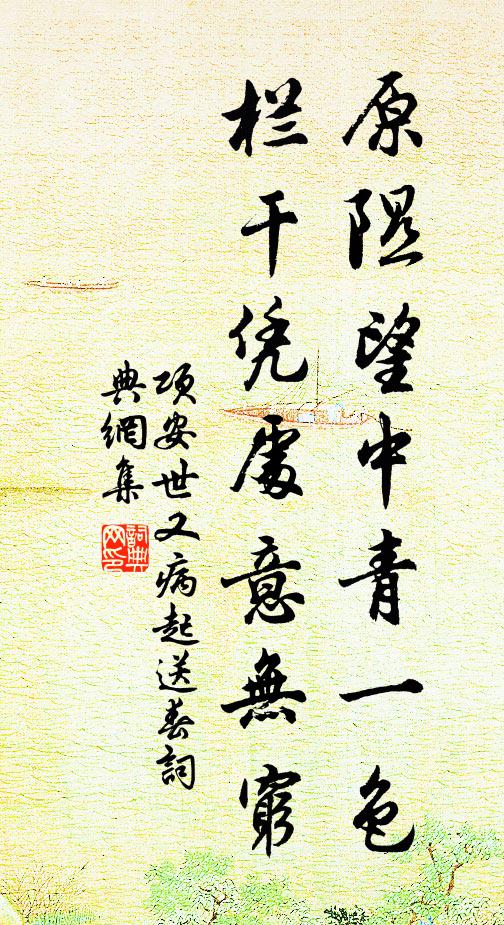 原隰望中青一色
栏干凭處意無窮
項安世又病起送春詞
典網集
詞典網印